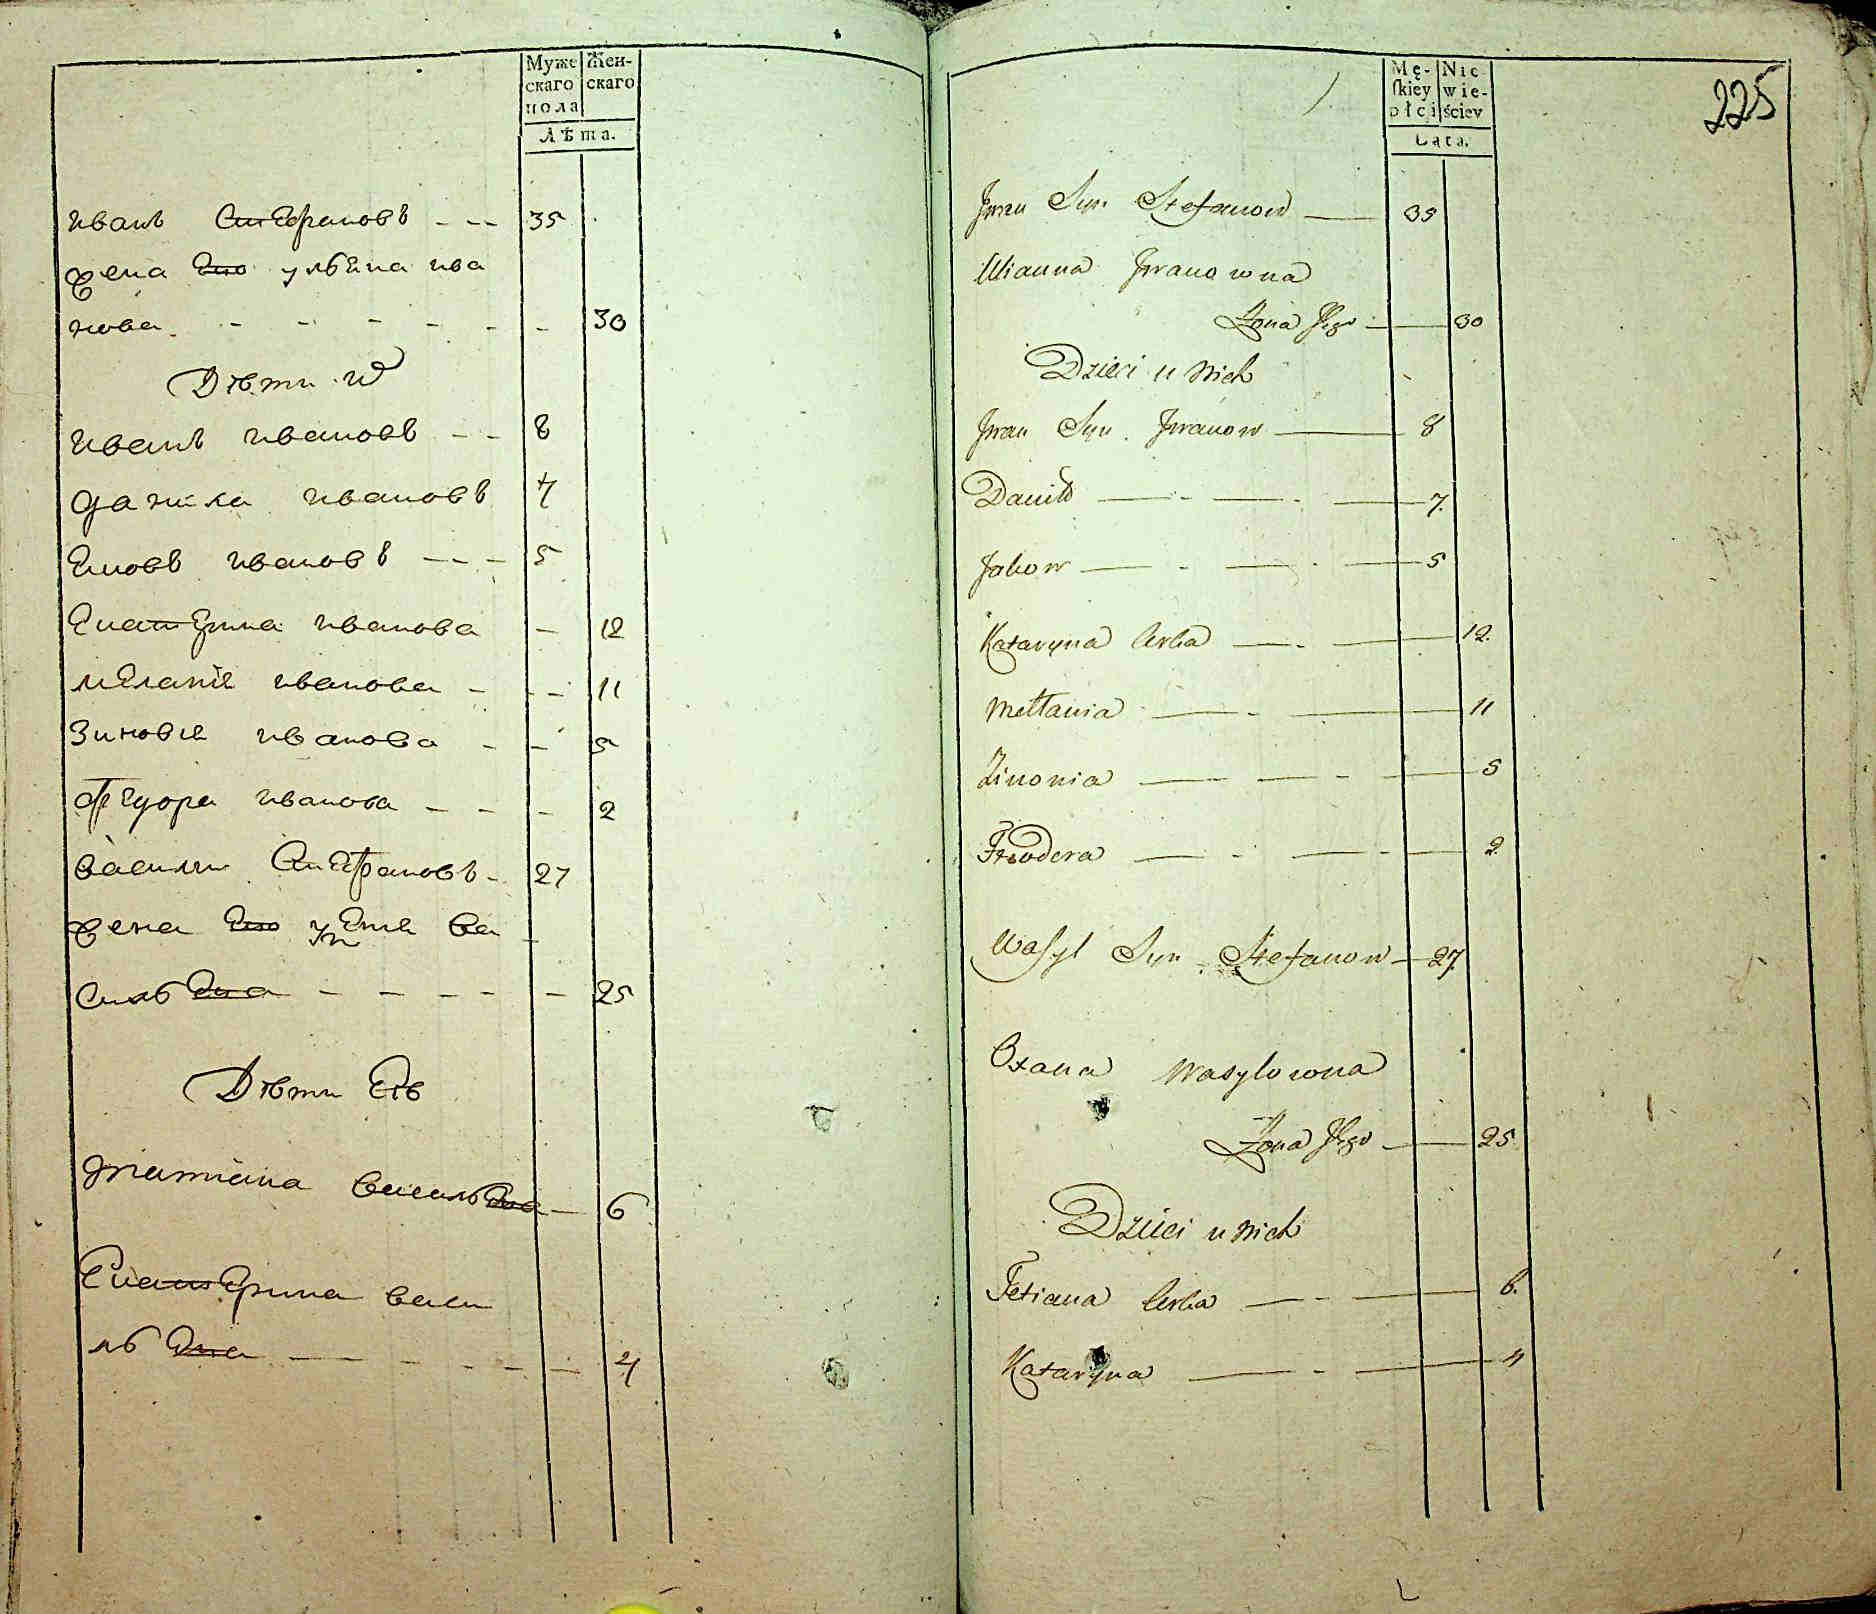 Муже
скаго
пола
Жен-
скаго
Лѣта.
иванъ Стефановъ - - - 35
жена Его ульяна ива
нова - - - - - - 30
Дѣти
иванъ ивановъ - - 8
данила ивановъ 7
Яковъ ивановъ - - - 5
Екатерина иванова - 12
меланія иванова - - - 11
Зиновія иванова - - 5
Федора иванова - - - 2
василии Стефановъ - 27
жена Его Ва
сильева - - - - - 25
Дѣти Еѣ
татіана васильева - 6
Екатерина васи
льева - - - - - - 4
Mę-
skiey
płci
Nie
wie-
ściey
Lata.
225
Jwan Syn Stefanow — 35
Ulianna Jwanowna
Żona Jego — 30
Dzieci u Nich
Jwan Syn Jwanow — 8
Daniło — - — - — 7.
Jakow — - — - — 5
Kataryna Corka — - — 12.
Mełłania — - — 11
Zinowia — — - — 5
Feodora — - — - — 2
Wasyl Syn Stefanow — 27
Oxana Wasylowna
Żona Jego — 25
Dzieci u Nich
Tetiana Corka — - — 6.
Kataryna — - — 4